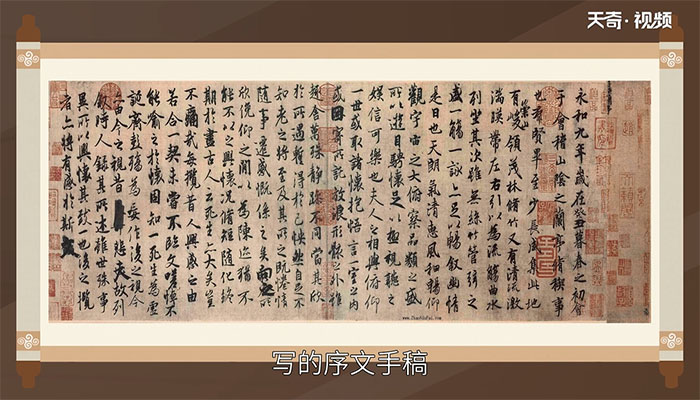 天奇·视频
永和九年歲在癸丑暮春之初會
于會稽山陰之蘭亭脩稧事
也羣賢畢至少長咸集此地
有崇山峻領茂林脩竹又有清流激
湍暎帶左右引以為流觴曲水
列坐其次雖無絲竹管弦之
盛一觴一詠亦足以暢敘幽情
是日也天朗氣清惠風和暢仰
觀宇宙之大俯察品類之盛
所以遊目騁懷足以極視聽之
娛信可樂也夫人之相與俯仰
一世或取諸懷抱悟言一室之內
或因寄所託放浪形骸之外雖
趣舍萬殊靜躁不同當其欣
於所遇蹔得於己怏然自足不
知老之將至及其所之既惓情
隨事遷感慨係之矣向之所
欣俛仰之閒以為陳迹猶不
能不以之興懷況脩短隨化終
期於盡古人云死生亦大矣豈
不痛哉每攬昔人興感之由
若合一契未嘗不臨文嗟悼不
能喻之於懷固知一死生為虛
誕齊彭殤為妄作後之視今
亦由今之視昔悲夫故列
敘時人錄其所述雖世殊事
異所以興懷其致一也後之攬
者亦將有感於斯文
写的序文手稿